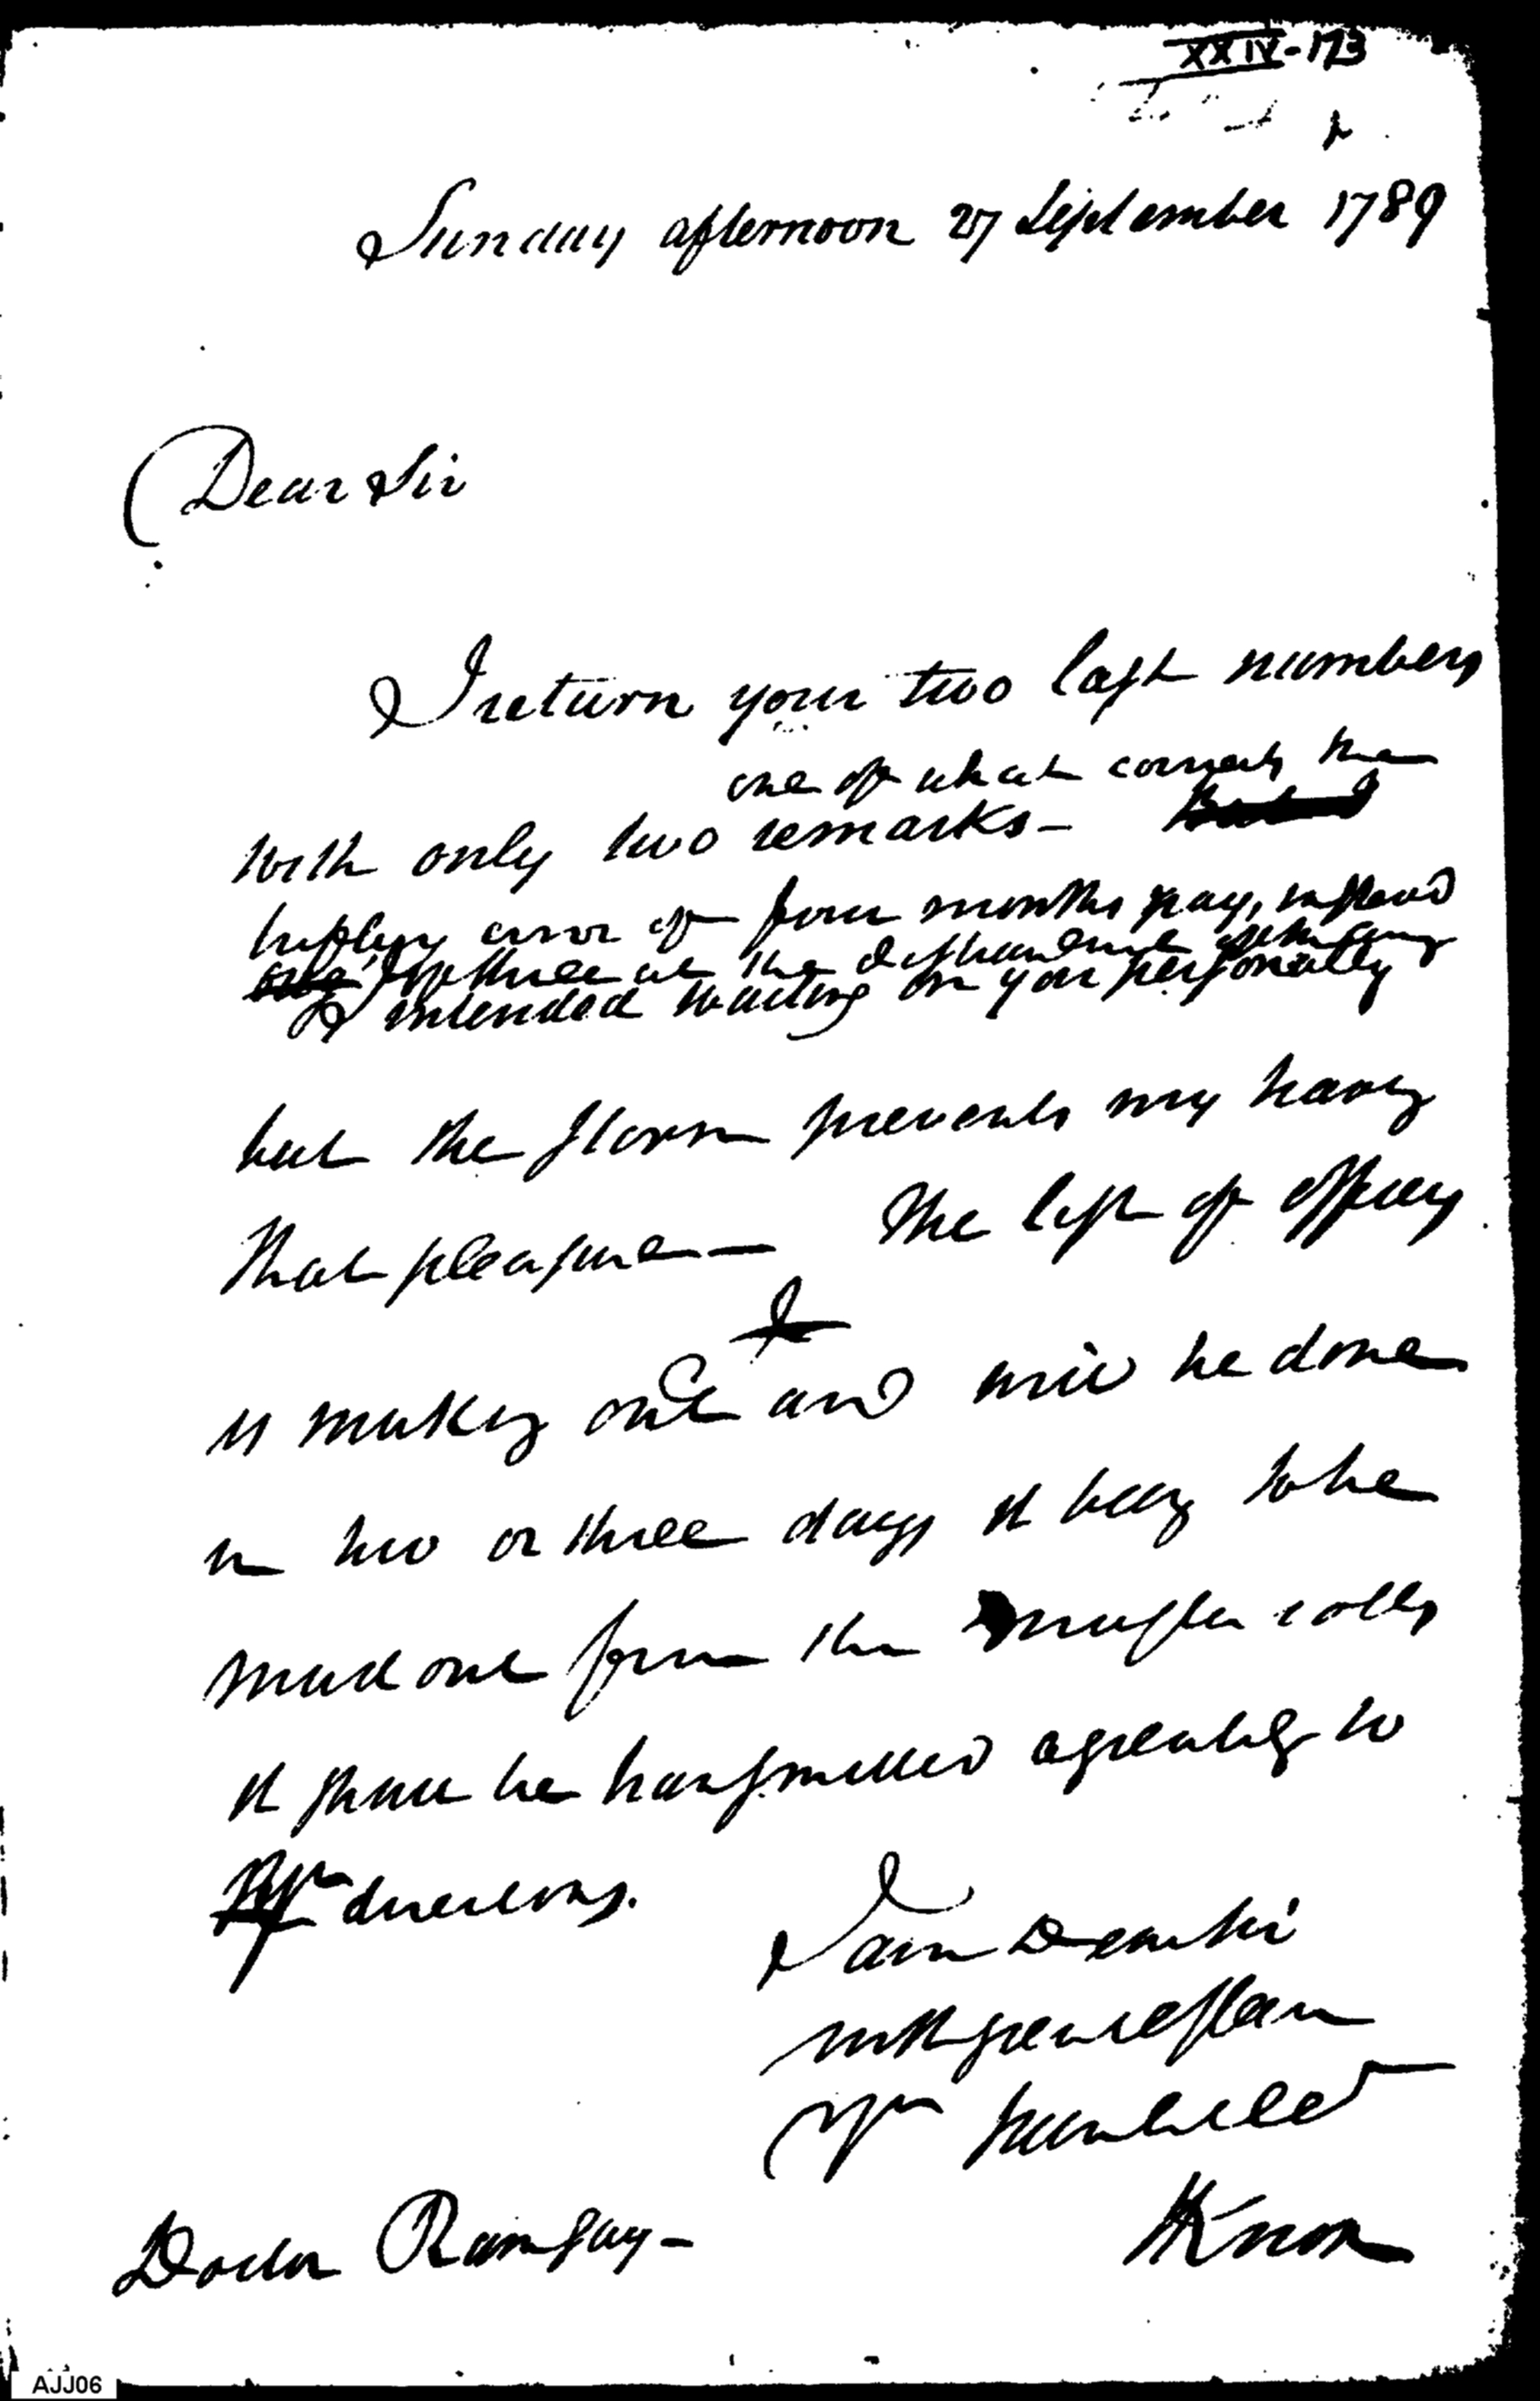 XXIV-173
Sunday afternoon 27 September 1789
Dear Sir
I return your two last numbers
one of what corrects the
with only two remarks –
error of four months pay, instead
of three at the disbandment of the army
I intended waiting on you personally
but the storm prevents my having
that pleasure — The list of officers
is making out and will be done
in two or three days it being to be
made out from the muster rolls
it shall be transmitted agreeably to
Yr directions.
I am Dear Sir
with great esteem
Yr humble
HKnox
Doctor Ramsay –
AJJ06